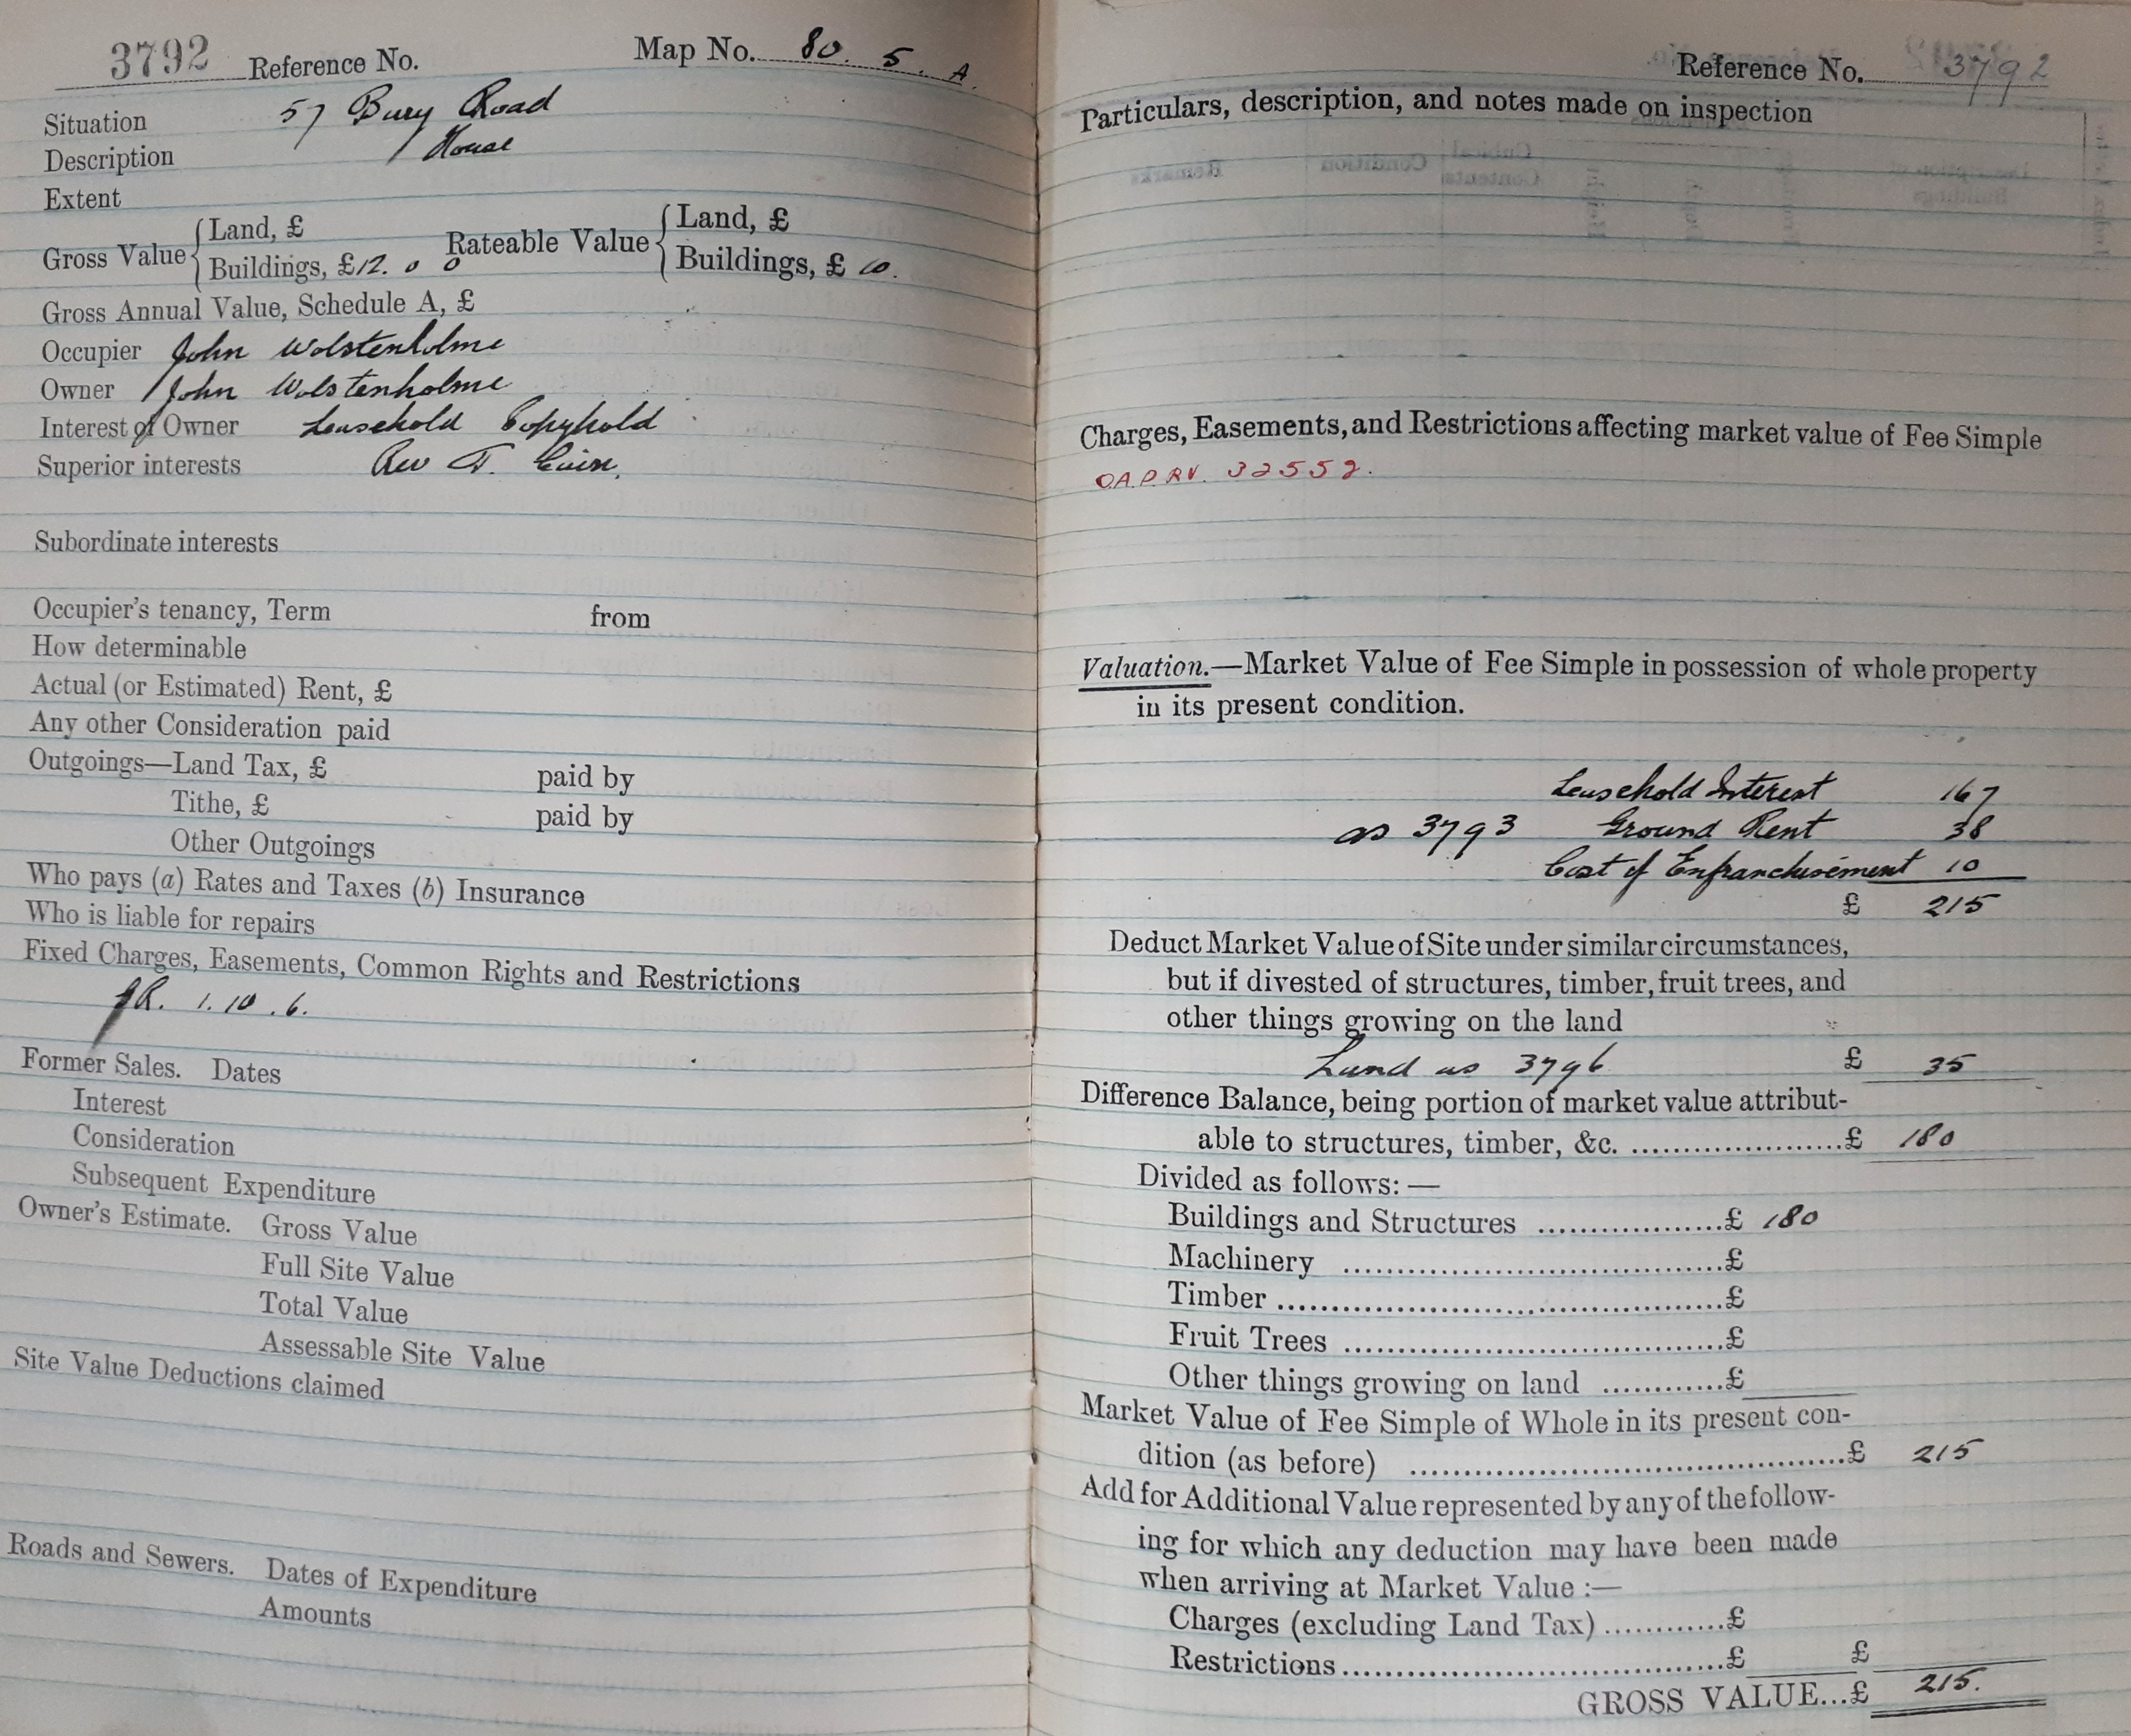 3792 Reference No. Map No. 80. 5. A.
Situation 57 Bury Road
Description House
Extent
Gross Value { Land, £ Rateable Value { Land, £
Buildings, £12. 0 0 Buildings, £ 10.
Gross Annual Value, Schedule A, £
Occupier John Wolstenholme
Owner John Wolstenholme
Interest of Owner Leasehold Copyhold
Superior interests Rev T.
Subordinate interests
Occupier's tenancy, Term from
How determinable
Actual (or Estimated) Rent, £
Any other Consideration paid
Outgoings—Land Tax, £ paid by
Tithe, £ paid by
Other Outgoings
Who pays (a) Rates and Taxes (b) Insurance
Who is liable for repairs
Fixed Charges, Easements, Common Rights and Restrictions
GR. 1. 10. 6.
Former Sales. Dates
Interest
Consideration
Subsequent Expenditure
Owner's Estimate. Gross Value
Full Site Value
Total Value
Assessable Site Value
Site Value Deductions claimed
Roads and Sewers. Dates of Expenditure
Amounts
Reference No. 3792
Particulars, description, and notes made on inspection
Charges, Easements, and Restrictions affecting market value of Fee Simple
O.A.D.RV. 32552.
Valuation.—Market Value of Fee Simple in possession of whole property
in its present condition.
Leasehold Interest 167
as 3793 Ground Rent 38
Cost of Enfranchisement 10
£ 215
Deduct Market Value of Site under similar circumstances,
but if divested of structures, timber, fruit trees, and
other things growing on the land
Land as 3796 £ 35
Difference Balance, being portion of market value attribut-
able to structures, timber, &c. ....................£ 180
Divided as follows: —
Buildings and Structures ..................£ 180
Machinery .....................................£
Timber ...........................................£
Fruit Trees ....................................£
Other things growing on land ............£
Market Value of Fee Simple of Whole in its present con-
dition (as before) ..........................................£ 215
Add for Additional Value represented by any of the follow-
ing for which any deduction may have been made
when arriving at Market Value :—
Charges (excluding Land Tax) ............£
Restrictions .....................................£ £
GROSS VALUE...£ 215.